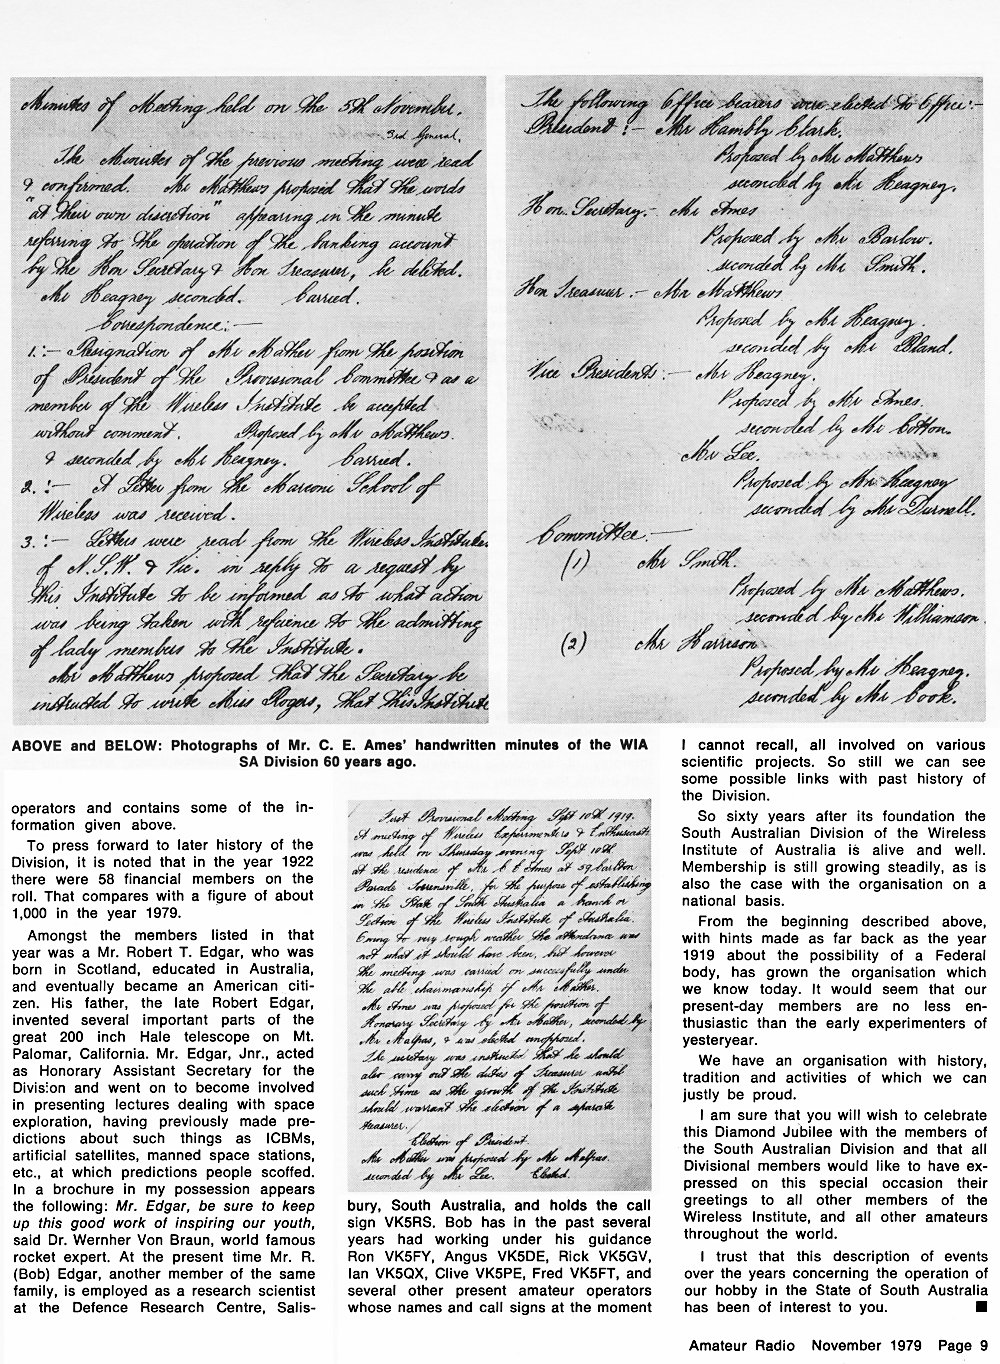 Minutes of Meeting held on the 5th November.
3rd General.
The Minutes of the previous meeting were read
& confirmed. Mr Matthews proposed that the words
"at their own discretion" appearing in the minute
referring to the operation of the banking account
by the Hon Secretary & Hon Treasurer, be deleted.
Mr Heagney seconded. Carried.
Correspondence:—
1:— Resignation of Mr Mather from the position
of President of the Provisional Committee & as a
member of the Wireless Institute be accepted
without comment. Proposed by Mr Matthews.
& seconded by Mr Heagney. Carried.
2.:— A Letter from the Marconi School of
Wireless was received.
3.:— Letters were read from the Wireless Institutes
of N.S.W. & Vic. in reply to a request by
this Institute to be informed as to what action
was being taken with refuence to the admitting
of lady members to the Institute.
Mr Matthews proposed that the Secretary be
instructed to write Miss Rogers, that this Institute
The following Office bearers were elected to Office:—
President:— Mr Hambly Clark.
Proposed by Mr Matthews
seconded by Mr Heagney.
Hon. Secretary.— Mr Ames
Proposed by Mr Barlow.
seconded by Mr Smith.
Hon Treasurer.— Mr Matthews
Proposed by Mr Heagney.
seconded by Mr Bland.
Vice Presidents:— Mr Heagney.
Proposed by Mr Ames.
seconded by Mr Cotton.
Mr Lee.
Proposed by Mr Heagney
seconded by Mr Durnell.
Committee.—
(1) Mr Smith.
Proposed by Mr Matthews.
seconded by Mr Williamson
(2) Mr Harrison
Proposed by Mr Heagney.
seconded by Mr Cook.
ABOVE and BELOW: Photographs of Mr. C. E. Ames' handwritten minutes of the WIA
SA Division 60 years ago.
operators and contains some of the in-
formation given above.
To press forward to later history of the
Division, it is noted that in the year 1922
there were 58 financial members on the
roll. That compares with a figure of about
1,000 in the year 1979.
Amongst the members listed in that
year was a Mr. Robert T. Edgar, who was
born in Scotland, educated in Australia,
and eventually became an American citi-
zen. His father, the late Robert Edgar,
invented several important parts of the
great 200 inch Hale telescope on Mt.
Palomar, California. Mr. Edgar, Jnr., acted
as Honorary Assistant Secretary for the
Division and went on to become involved
in presenting lectures dealing with space
exploration, having previously made pre-
dictions about such things as ICBMs,
artificial satellites, manned space stations,
etc., at which predictions people scoffed.
In a brochure in my possession appears
the following: Mr. Edgar, be sure to keep
up this good work of inspiring our youth,
said Dr. Wernher Von Braun, world famous
rocket expert. At the present time Mr. R.
(Bob) Edgar, another member of the same
family, is employed as a research scientist
at the Defence Research Centre, Salis-
First Provisional Meeting Sept 10th 1919.
A meeting of Wireless Experimenters & Enthusiasts
was held on Thursday evening Sept 10th
at the residence of Mr C E Ames at 59 Carlton
Parade Torrensville, for the purpose of establishing
in the State of South Australia a branch or
Section of the Wireless Institute of Australia.
Owing to very rough weather the attendance was
not what it should have been, but however
the meeting was carried on successfully under
the able chairmanship of Mr Mather.
Mr Ames was proposed for the position of
Honorary Secretary by Mr Mather, seconded by
Mr Malpas, & was elected unopposed.
The secretary was instructed that he should
also carry out the duties of Treasurer until
such time as the growth of the Institute
should warrant the election of a separate
treasurer.
Election of President.
Mr Mather was proposed by Mr Malpas.
seconded by Mr Lee. Elected.
bury, South Australia, and holds the call
sign VK5RS. Bob has in the past several
years had working under his guidance
Ron VK5FY, Angus VK5DE, Rick VK5GV,
Ian VK5QX, Clive VK5PE, Fred VK5FT, and
several other present amateur operators
whose names and call signs at the moment
I cannot recall, all involved on various
scientific projects. So still we can see
some possible links with past history of
the Division.
So sixty years after its foundation the
South Australian Division of the Wireless
Institute of Australia is alive and well.
Membership is still growing steadily, as is
also the case with the organisation on a
national basis.
From the beginning described above,
with hints made as far back as the year
1919 about the possibility of a Federal
body, has grown the organisation which
we know today. It would seem that our
present-day members are no less en-
thusiastic than the early experimenters of
yesteryear.
We have an organisation with history,
tradition and activities of which we can
justly be proud.
I am sure that you will wish to celebrate
this Diamond Jubilee with the members of
the South Australian Division and that all
Divisional members would like to have ex-
pressed on this special occasion their
greetings to all other members of the
Wireless Institute, and all other amateurs
throughout the world.
I trust that this description of events
over the years concerning the operation of
our hobby in the State of South Australia
has been of interest to you. ■
Amateur Radio November 1979 Page 9